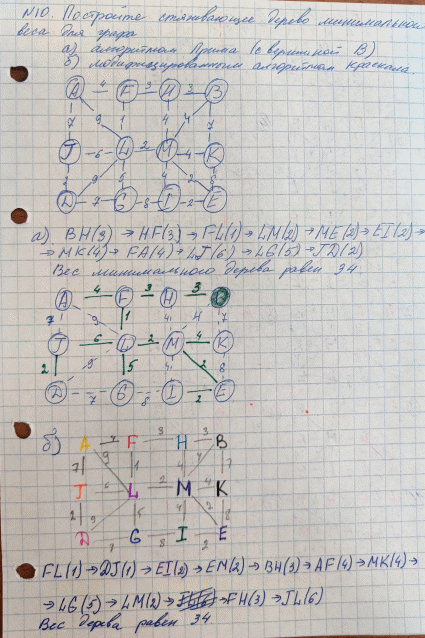 №10. Постройте стягивающее дерево минимального
веса для графа
а) алгоритмом Прима (с вершиной B)
б) модифицированным алгоритмом Краскала.
A 4 F 3 H 3 B
7 9 1 4 4 7
J 6 L 2 M 4 K
2 9 5 4 2 8
D 7 G 8 I 2 E
а) BH(3)→HF(3)→FL(1)→LM(2)→ME(2)→EI(2)→
→MK(4)→FA(4)→LJ(6)→LG(5)→JD(2)
Вес минимального дерева равен 34
A 4 F 3 H 3
7 9 1 4 4 7
J 6 L 2 M 4 K
2 9 5 4 2 8
D 7 G 8 I 2 E
б) A 4 F 3 H 3 B
7 9 1 4 4 7
J 6 L 2 M 4 K
2 9 5 4 2 8
D 7 G 8 I 2 E
FL(1)→DJ(1)→EI(2)→EM(2)→BH(3)→AF(4)→MK(4)→
→LG(5)→LM(2)→FH(3)→JL(6)
Вес дерева равен 34